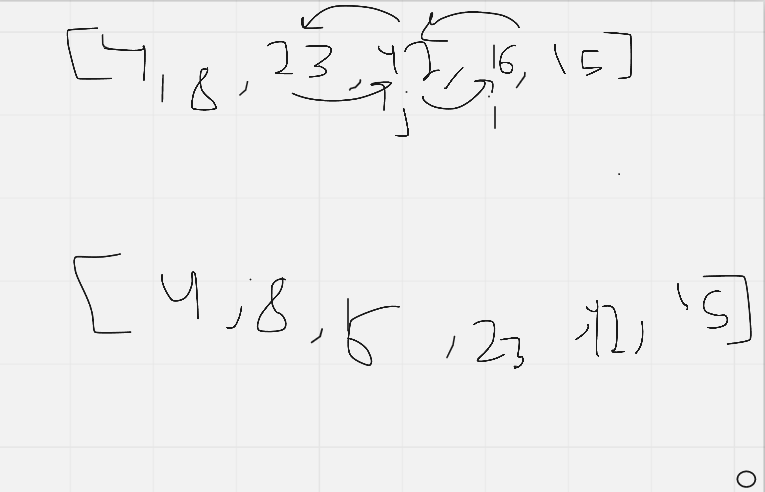 [4, 8, 23, 42, 16, 15]
j i
[4, 8, 15, 23, 42, 15]